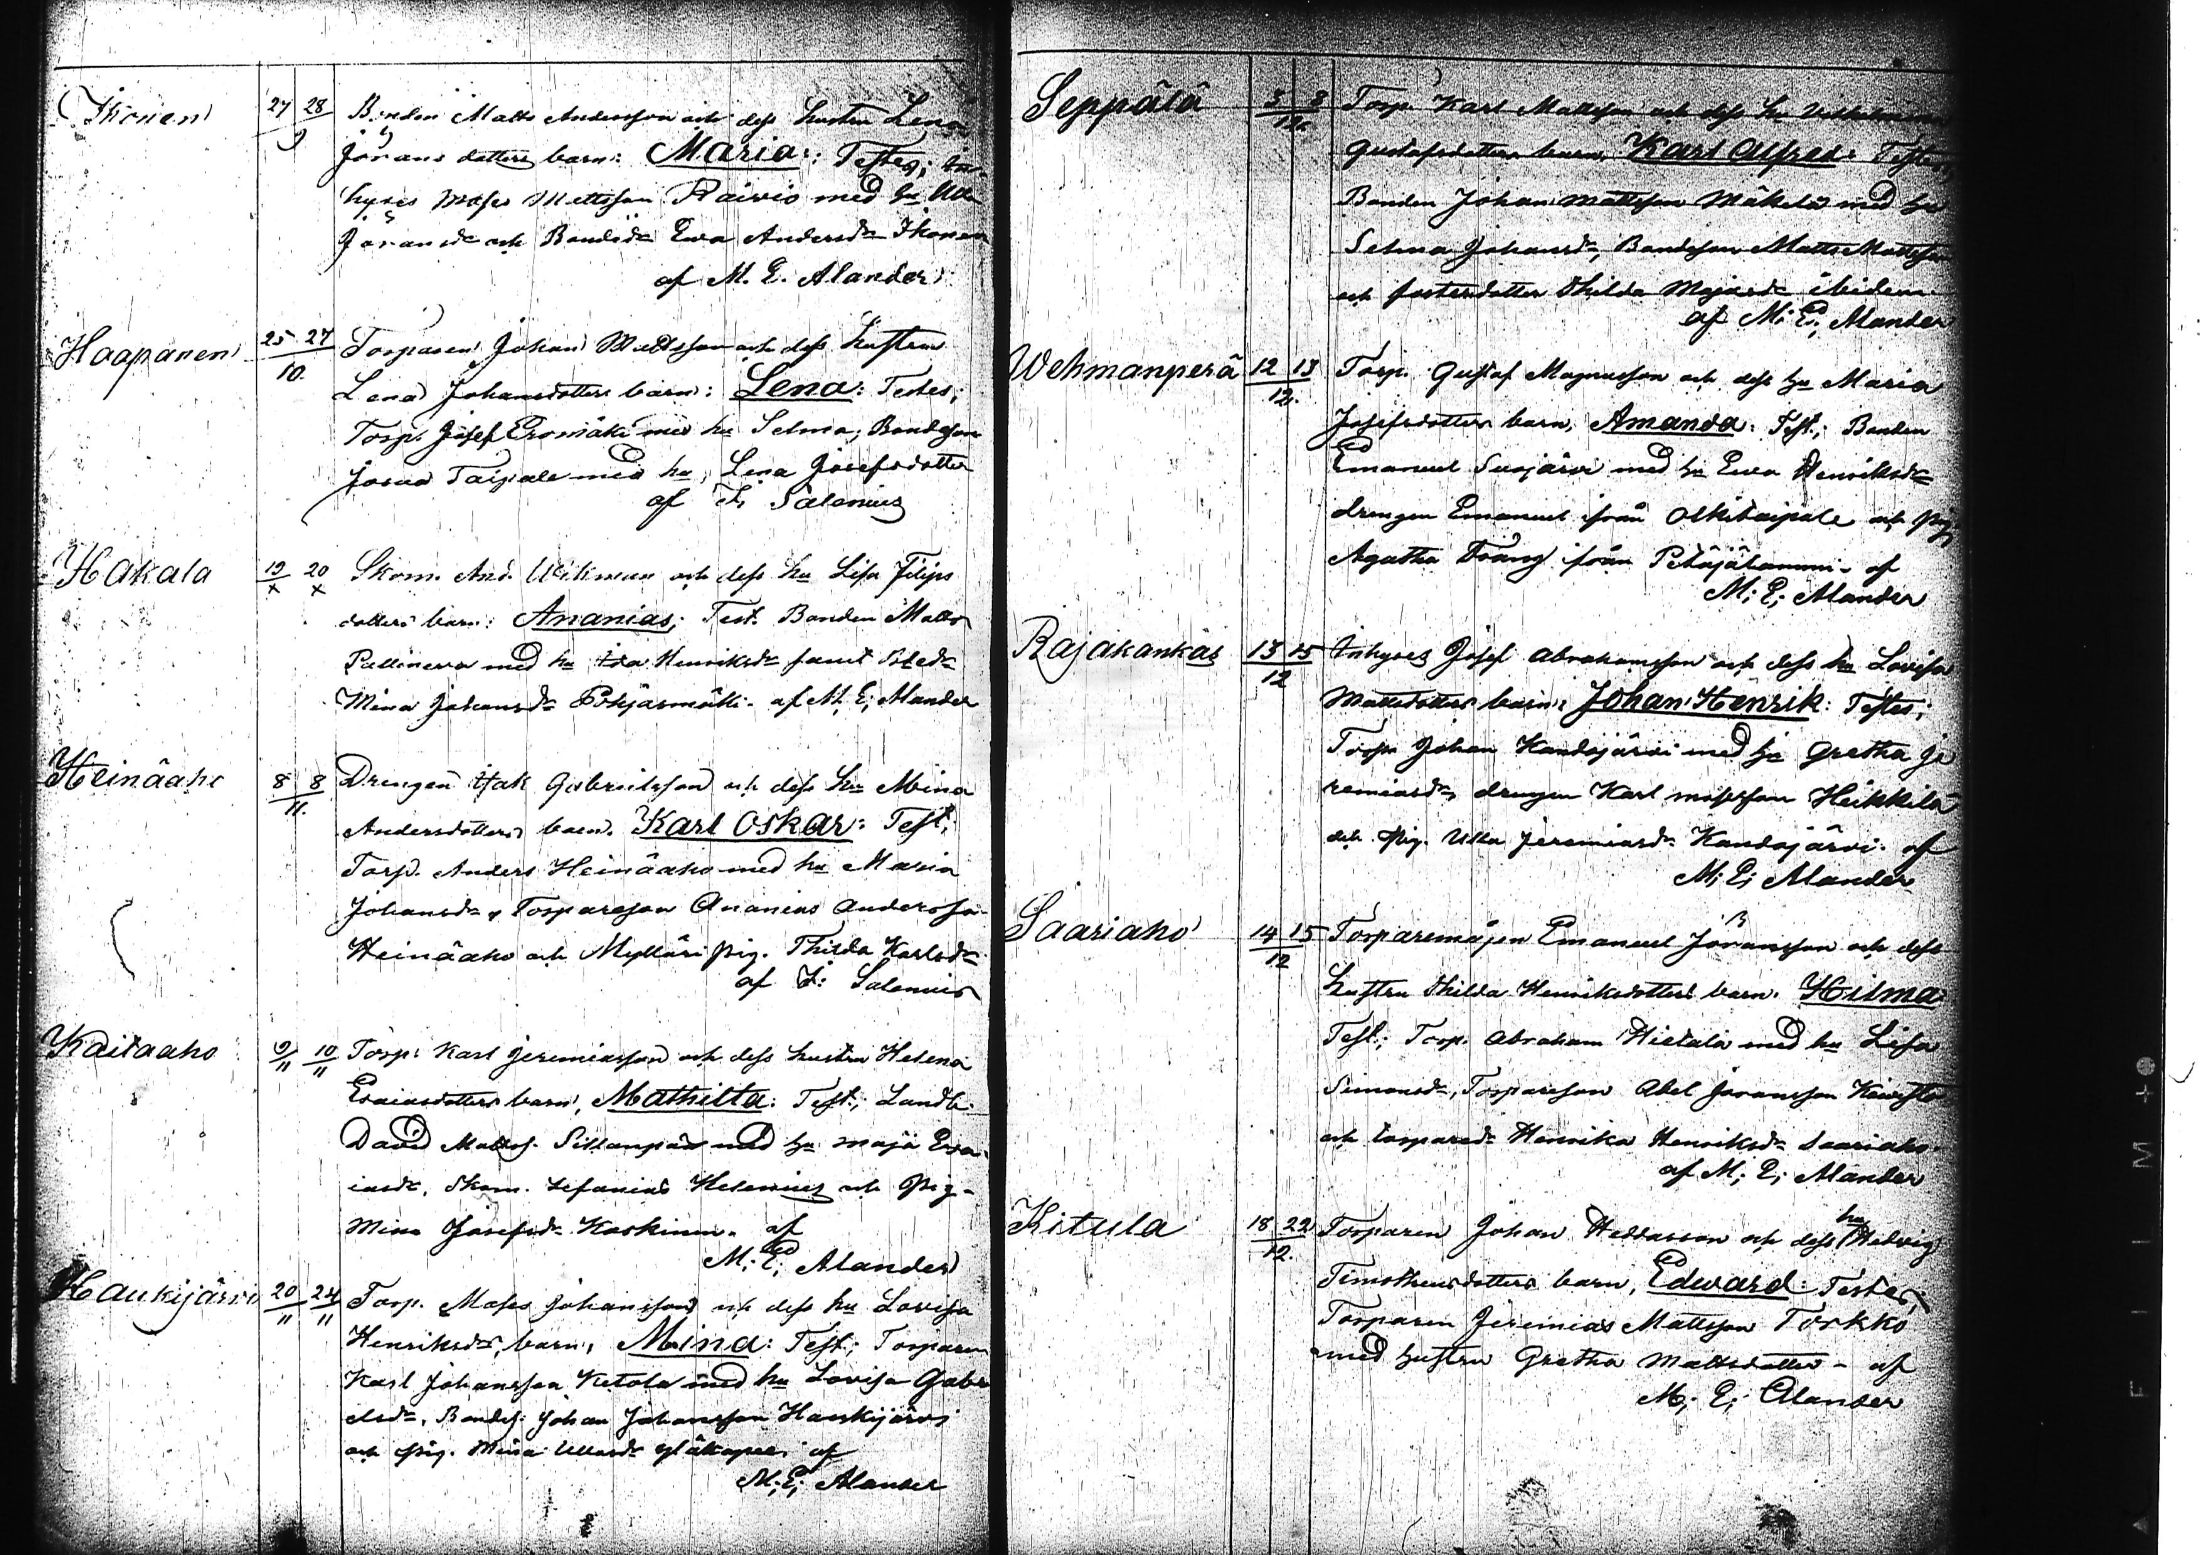 Ikonen 27 28 Bonden Matts Andersson och dess hustru Lena
9 Jörans dotters barn: Maria: Testes; in-
hyses Moses Mattsson Raivio med hu Ulla
Jöransdr och Bondedr Eva Andersdr Ikonen
af M. E. Alander
Haapanen 25 27 Torparen Johan Mattsson och dess hustrus
10. Lena Johansdotters barn: Lena: Testes;
Torp. Josef Eromäki med hu Selma, Bondeson
Josua Taipale med hu, Lena Josefsdotter
af F. Salenius
Hakala 19 20 Skom. And. Wikman och dess hu Lisa Filips
x x dotters barn: Ananias; Test. Bonden Matts
med hu Ida Henriksdr samt
Mina Johansdr af M. E; Alander
Heinäaho 8 8 Drengen Isak Gabrielsson och dess hu Mina
11. Andersdotters barn. Karl Oskar: Test;
Torp. Anders Heinäaho med hu Maria
Johansdr, Torpareson Ananias Andersson
Heinäaho och Mylläri pig. Thilda Karlsdr
af F: Salenius
Kaitaaho 9 10 Torp: Karl Jeremiasson och dess hustru Helena
11 11 Esaiasdotters barn, Mathilta: Test.; Landb.
David Matts. Sillanpää med hu Maja Esa-
iasdr, Skom. Zefanias Helenius och Pig-
Mina Josefsdr Koskinen. af
M. E; Alander
Haukijärvi 20 24 Torp. Moses Johansson och dess hu Lovisa
11 11 Henriksdrs, barn, Mina: Test; Torparen
Karl Johansson Ketola med hu Lovisa Gabri
elsdr, Bondes. Johan Johansson Haukijärvi
och pig. Mina af
M; E; Alander
Seppälä 3 8 Torp. Karl Mattsson och dess hu Vilhelmina
12. Gustafsdotters barn, Karl Alfred: Testes;
Bonden Johan Mattsson Mäkelä med hu
Selma Johansdr, Bondeson Matts Mattsson
och fosterdotter Thilda Majasdr ibidem
af M; E; Alander
Wehmanperä 12 13 Torp. Gustaf Magnusson och dess hu Maria
12. Josefsdotters barn, Amanda: Test.; Bonden
Emanuel Suojärvi med hu Eva Henriksdr
drengen Emanuel ifrån Olkitaipale och pig
Agatha ifrån Petäjälammi. af
M; E; Alander
Rajakankas 13 15 Inhyses Josef Abrahamsson och dess hu Lovisa
12 Mattsdotters barn: Johan Henrik: Testes;
Torp Johan Kandojärvi med hu Gretha Je
remiasdr, drengen Karl Mosesson Heikkilä
och Pig. Ulla Jeremiasdr Kandojärvi. af
M; E; Alander
Saariaho 14 15 Torparemågen Emanuel Jöransson och dess
12 hustru Thilda Henriksdotters barn. Hilma
Test.; Torp. Abraham Hietala med hu Lisa
Simonsdr, Torpareson Abel Jöransson
och torparedr Henrika Henriksdr Saariaho
af M; E; Alander
Kitula 18 22 Torparen Johan Heddasson och dess hu Hedvig
12. Timotheusdotters barn, Edward: Testes;
Torparen Jeremias Mattsson Torkko
med hustru Gretha Mattsdotter - af
M; E; Alander
FILM